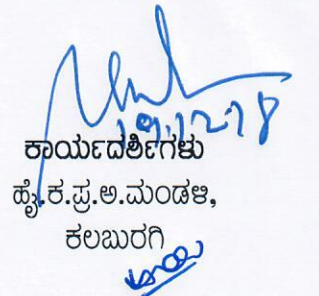 19/12/18
ಕಾರ್ಯದರ್ಶಿಗಳು
ಹೈ.ಕ.ಪ್ರ.ಅ.ಮಂಡಳಿ,
ಕಲಬುರಗಿ